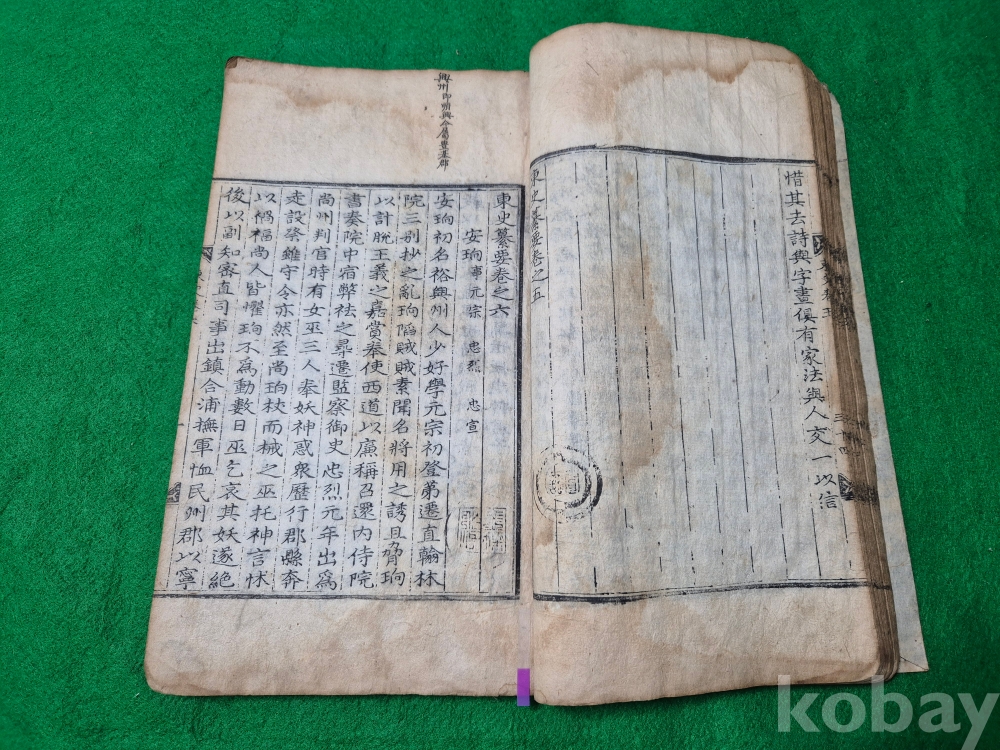 惜其去詩與字畫俱有家法與人交一以信
東史纂要卷之五
興州即順興今屬豊基郡
東史纂要卷之六
安珦事元宗 忠烈 忠宣
安珦初名裕興州人少好學元宗初登第遷直翰林
院三别抄之亂珦陷賊賊素聞名將用之誘且脅珦
以計脫王義之嘉賞奉使西道以廉稱召還内侍院
書奏院中宿弊祛之尋遷監察御史忠烈元年出爲
尚州判官時有女巫三人奉妖神惑衆歷行郡縣奔
走設祭雖守令亦然至尚珦杖而械之巫托神言怵
以禍福尚人皆懼珦不爲動數日巫乞哀其妖遂絶
後以副知密直司事出鎮合浦撫軍恤民州郡以寧
kobay